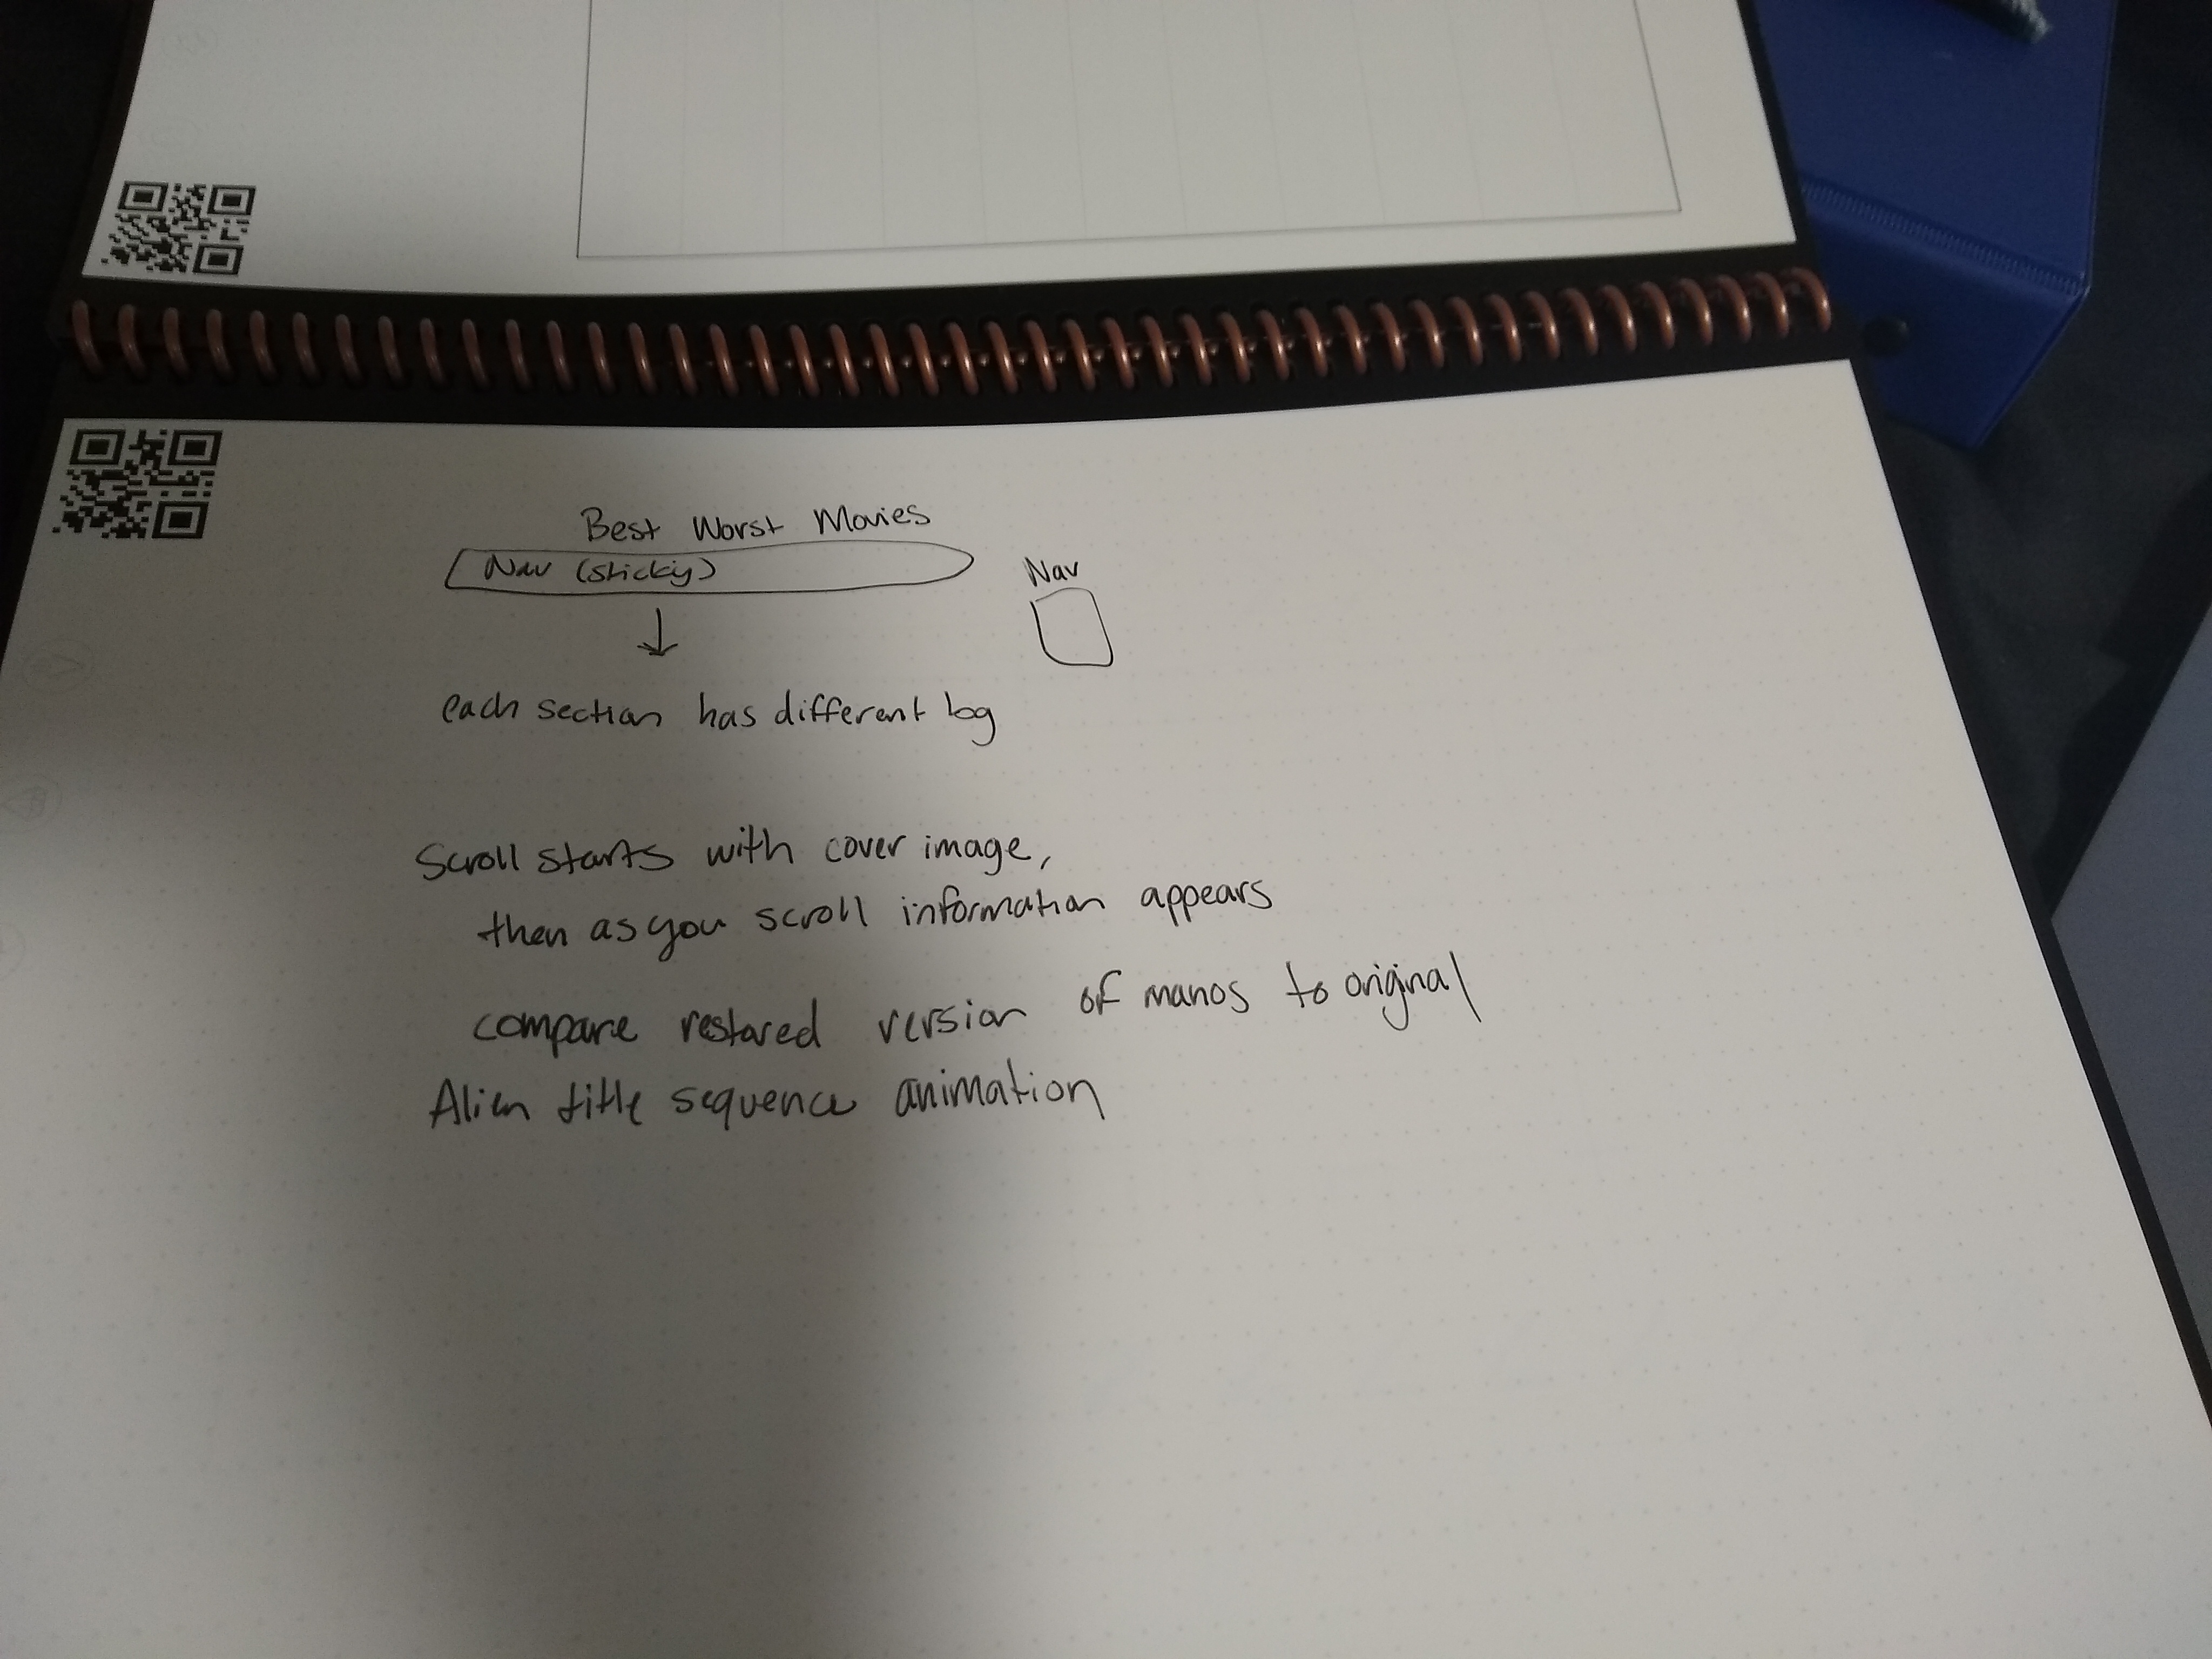 Best Worst Movies
Nav (sticky)
Nav
each section has different
Scroll starts with cover image,
then as you scroll information appears
compare restored version of manos to original
Alien title sequence animation